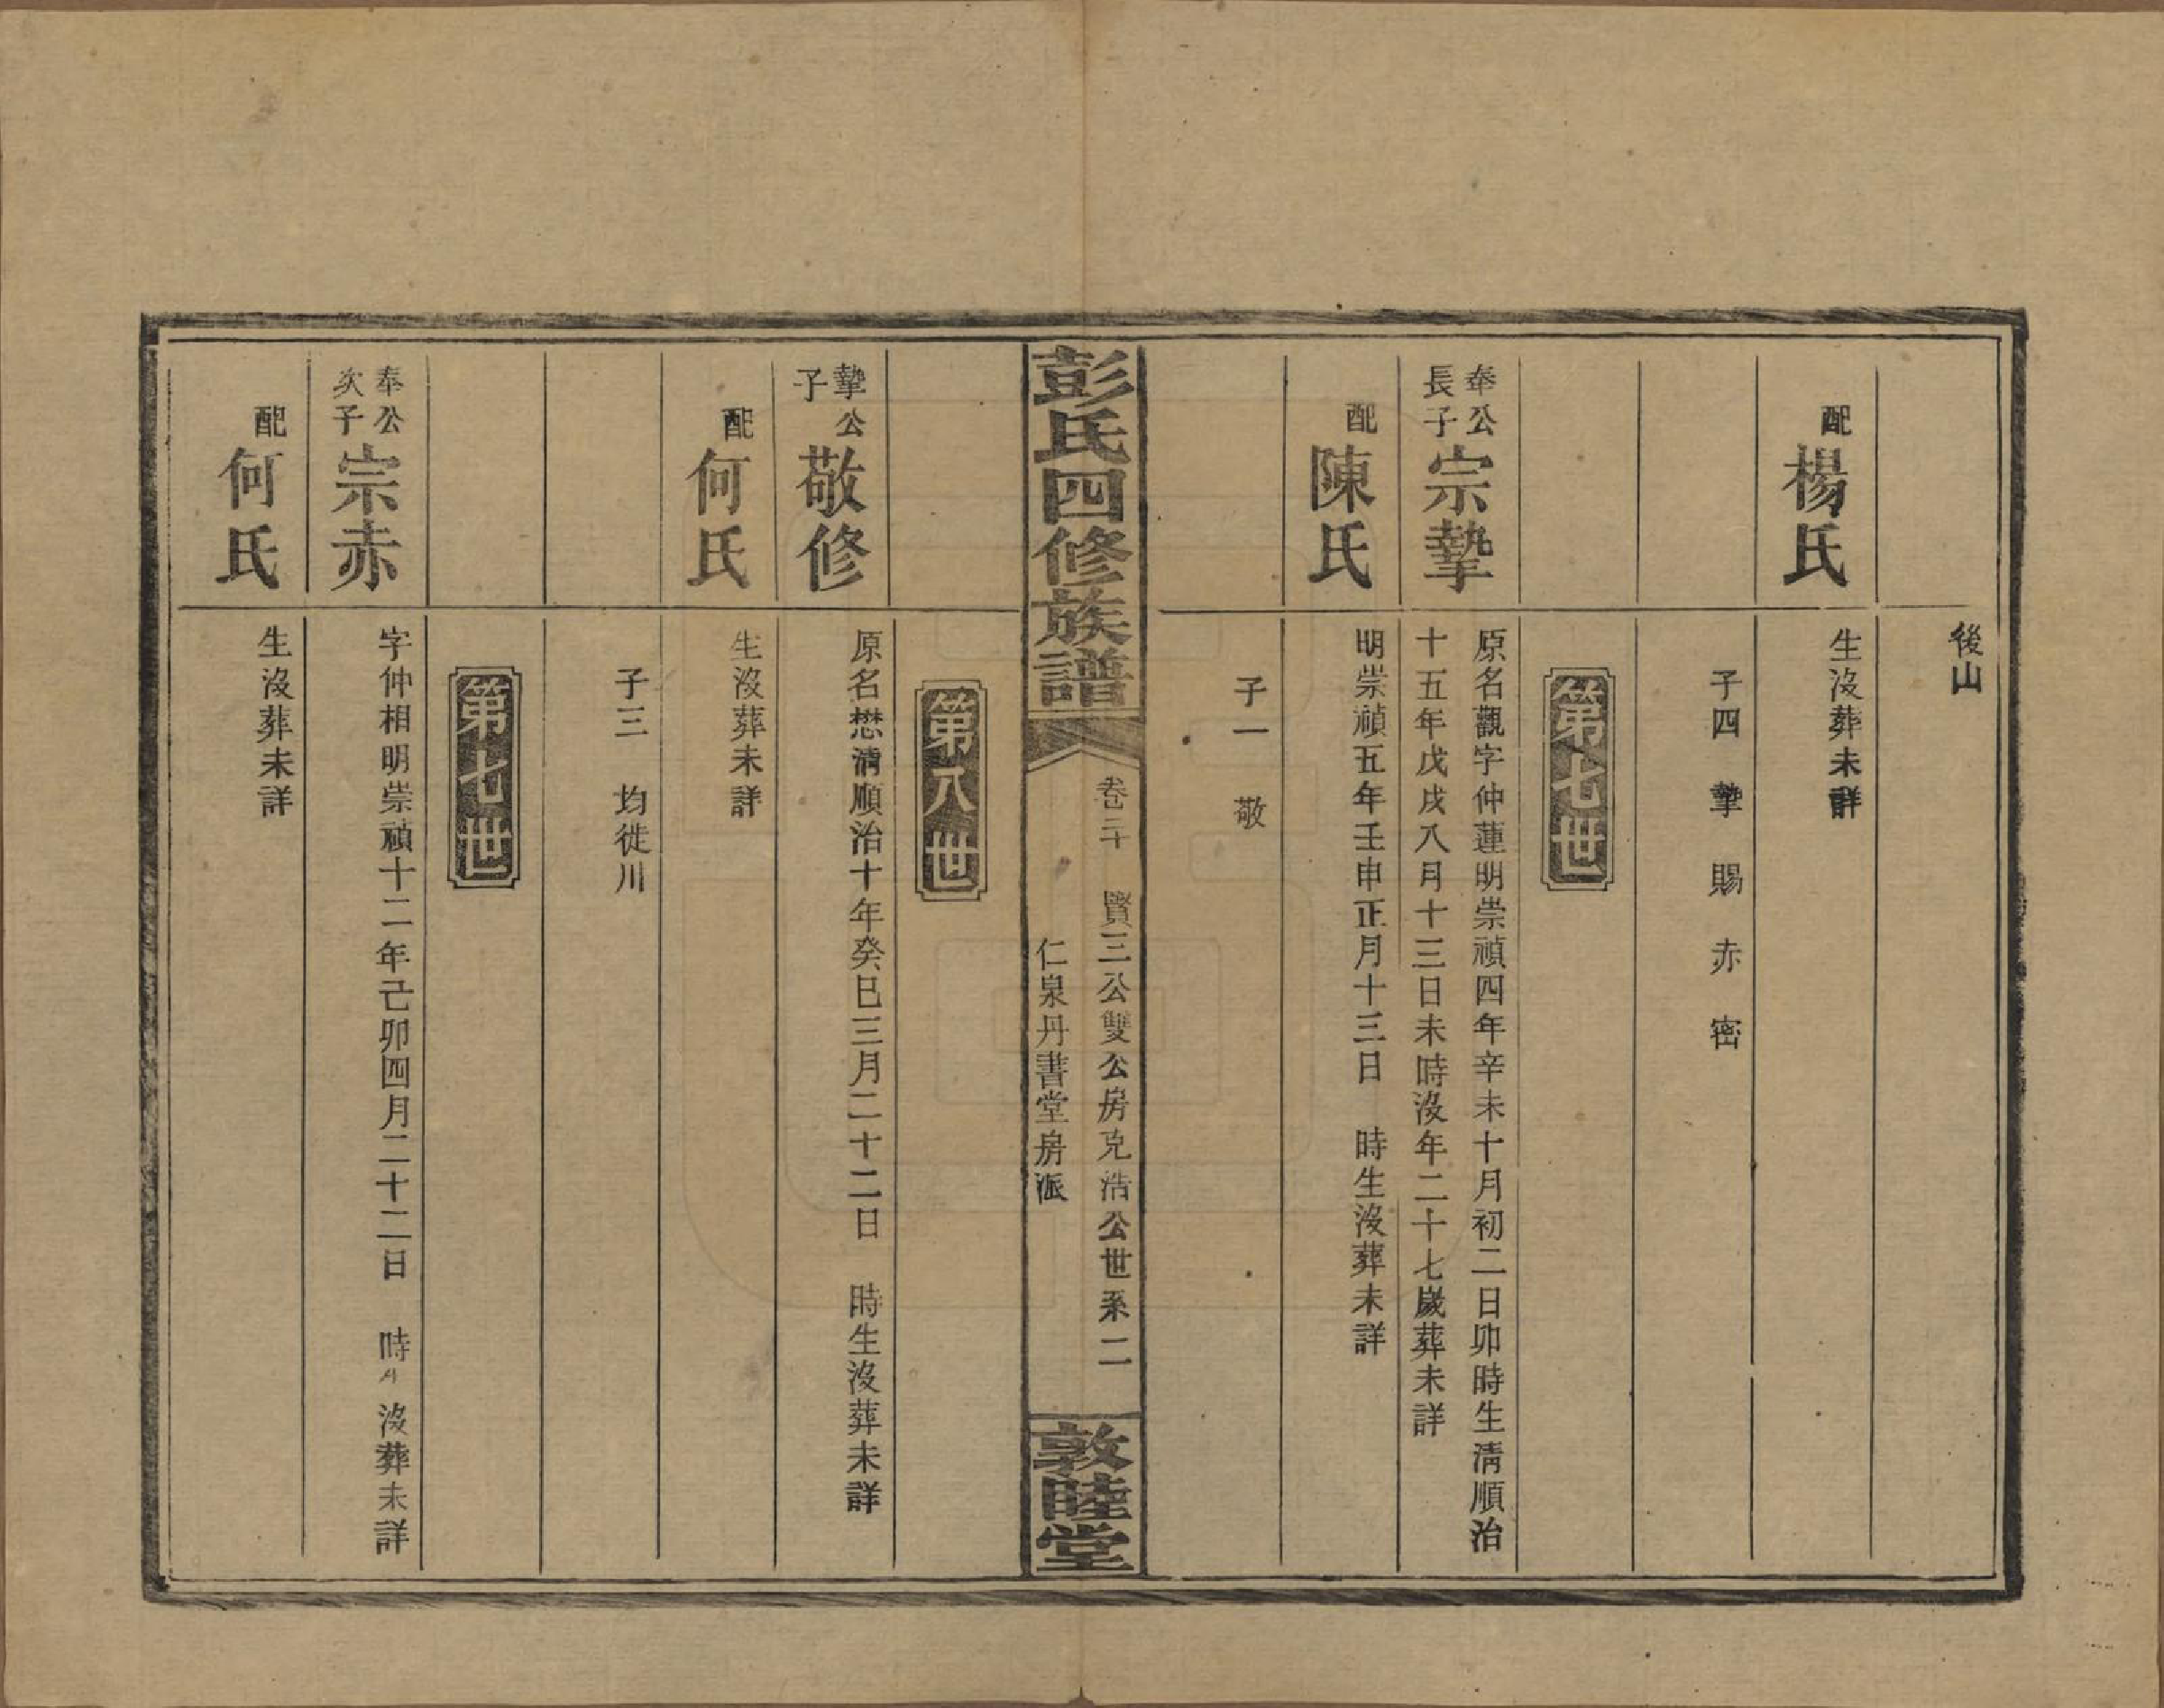 後山
配楊氏
生沒葬未詳
子四　摯　賜　赤　密
第七世
奉公長子宗摯
原名觀字仲蓮明崇禎四年辛未十月初二日卯時生清順治
十五年戊戌八月十三日未時沒年二十七歲葬未詳
配陳氏
明崇禎五年壬申正月十三日　時生沒葬未詳
子一　敬
彭氏四修族譜
卷三十　賢三公雙公房克浩公世系二
仁泉丹書堂房派
敦睦堂
第八世
摯公子敬修
原名懋清順治十年癸巳三月二十二日　時生沒葬未詳
配何氏
生沒葬未詳
子三　均徙川
第七世
奉公次子宗赤
字仲相明崇禎十二年己卯四月二十二日　時　沒葬未詳
配何氏
生沒葬未詳